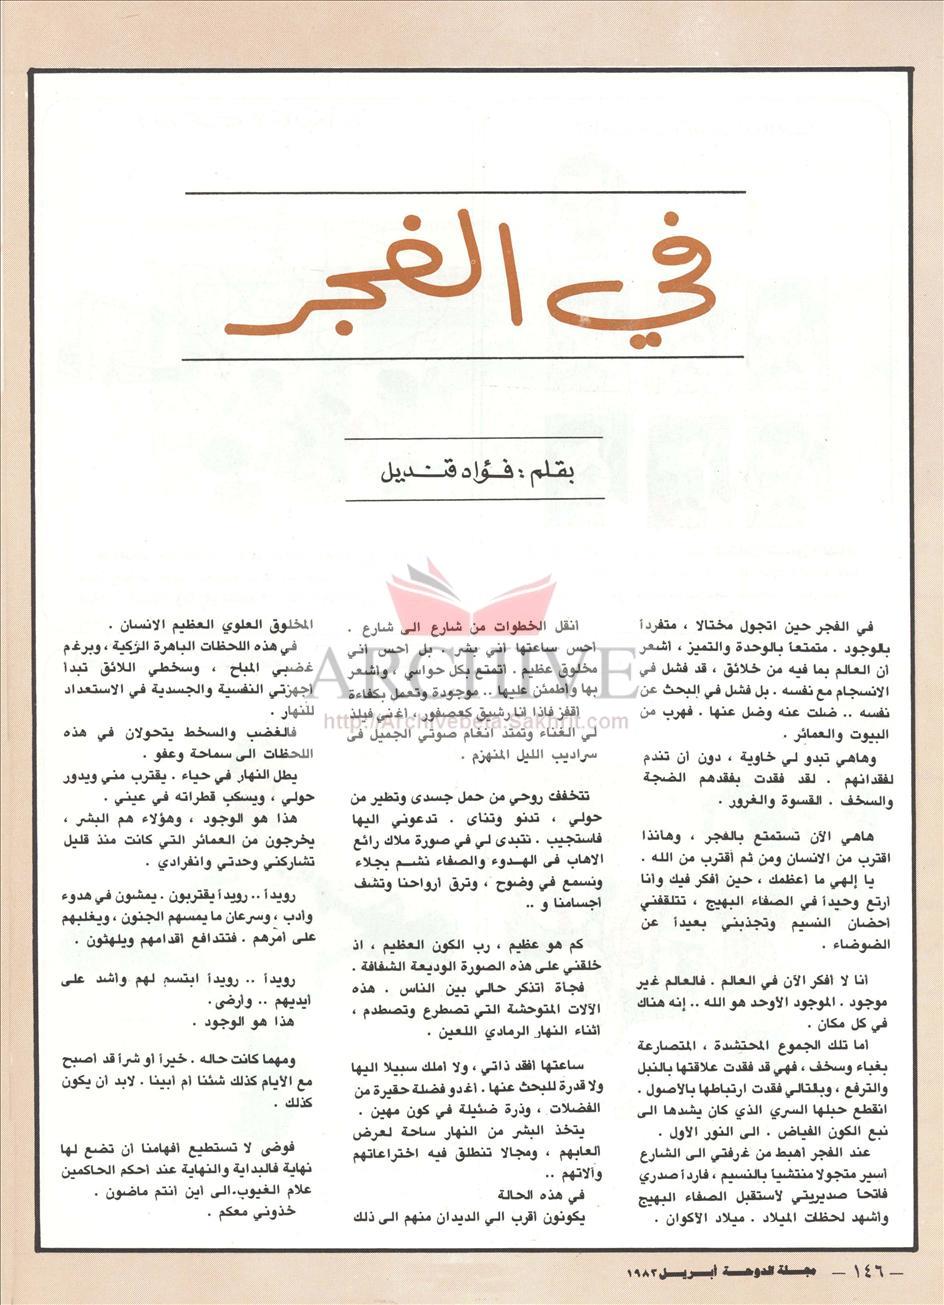 في الفجر
بقلم : فؤاد قنديل
في الفجر حين اتجول مختالا ، متفرداً
بالوجود . متمتعاً بالوحدة والتميز ، أشعر
أن العالم بما فيه من خلائق ، قد فشل في
الانسجام مع نفسه . بل فشل في البحث عن
نفسه .. ضلت عنه وضل عنها . فهرب من
البيوت والعمائر .
وهاهي تبدو لي خاوية ، دون أن تندم
لفقدانهم . لقد فقدت بفقدهم الضجة
والسخف . القسوة والغرور .
هاهي الآن تستمتع بالفجر ، وهانذا
اقترب من الانسان ومن ثم أقترب من الله .
يا إلهي ما أعظمك ، حين أفكر فيك وأنا
أرتع وحيداً في الصفاء البهيج ، تتلقفني
أحضان النسيم وتجذبني بعيداً عن
الضوضاء .
أنا لا أفكر الآن في العالم . فالعالم غير
موجود . الموجود الأوحد هو الله .. إنه هناك
في كل مكان .
أما تلك الجموع المحتشدة ، المتصارعة
بغباء وسخف ، فهي قد فقدت علاقتها بالنبل
والترفع ، وبالتالي فقدت ارتباطها بالأصول .
انقطع حبلها السري الذي كان يشدها الى
نبع الكون الفياض . الى النور الأول .
عند الفجر أهبط من غرفتي الى الشارع
أسير متجولا منتشياً بالنسيم ، فارداً صدري
فاتحاً صديريتي لأستقبل الصفاء البهيج
وأشهد لحظات الميلاد . ميلاد الأكوان .
أنقل الخطوات من شارع الى شارع .
أحس ساعتها أني بشر . بل أحس أني
مخلوق عظيم . أتمتع بكل حواسي ، وأشعر
بها وأطمئن عليها .. موجودة وتعمل بكفاءة
أقفز فاذا انا رشيق كعصفور ، أغني فيلذ
لي الغناء وتمتد أنغام صوتي الجميل في
سراديب الليل المنهزم .
تتخفف روحي من حمل جسدى وتطير من
حولي ، تدنو وتناى . تدعوني اليها
فاستجيب . تتبدى لي في صورة ملاك رائع
الاهاب في الهدوء والصفاء نشم بجلاء
ونسمع في وضوح ، وترق أرواحنا وتشف
أجسامنا و ..
كم هو عظيم ، رب الكون العظيم ، اذ
خلقني على هذه الصورة الوديعة الشفافة .
فجأة أتذكر حالي بين الناس . هذه
الآلات المتوحشة التي تصطرع وتصطدم ،
أثناء النهار الرمادي اللعين .
ساعتها أفقد ذاتي ، ولا أملك سبيلا اليها
ولا قدرة للبحث عنها . أغدو فضلة حقيرة من
الفضلات ، وذرة ضئيلة في كون مهين .
يتخذ البشر من النهار ساحة لعرض
ألعابهم ، ومجالا تنطلق فيه اختراعاتهم
وآلاتهم ..
في هذه الحالة
يكونون أقرب الي الديدان منهم الى ذلك
المخلوق العلوي العظيم الانسان .
في هذه اللحظات الباهرة الزكية ، وبرغم
غضبي المباح ، وسخطي اللائق تبدأ
أجهزتي النفسية والجسدية في الاستعداد
للنهار .
فالغضب والسخط يتحولان في هذه
اللحظات الى سماحة وعفو .
يطل النهار في حياء . يقترب مني ويدور
حولي ، ويسكب قطراته في عيني .
هذا هو الوجود ، وهؤلاء هم البشر ،
يخرجون من العمائر التي كانت منذ قليل
تشاركني وحدتي وانفرادي .
رويداً .. رويداً يقتربون . يمشون في هدوء
وأدب ، وسرعان ما يمسهم الجنون ، ويغلبهم
على أمرهم . فتتدافع أقدامهم ويلهثون .
رويداً .. رويداً ابتسم لهم وأشد على
أيديهم .. وأرضى .
هذا هو الوجود .
ومهما كانت حاله . خيراً أو شراً قد أصبح
مع الأيام كذلك شئنا أم أبينا . لابد أن يكون
كذلك .
فوضى لا تستطيع أفهامنا أن تضع لها
نهاية فالبداية والنهاية عند أحكم الحاكمين
علام الغيوب .. الى أين أنتم ماضون .
خذوني معكم .
ARCHIVE
http://Archivebeta.Sakhrit.com
— ١٤٦ — مجلة الدوحة أبريل ١٩٨٣